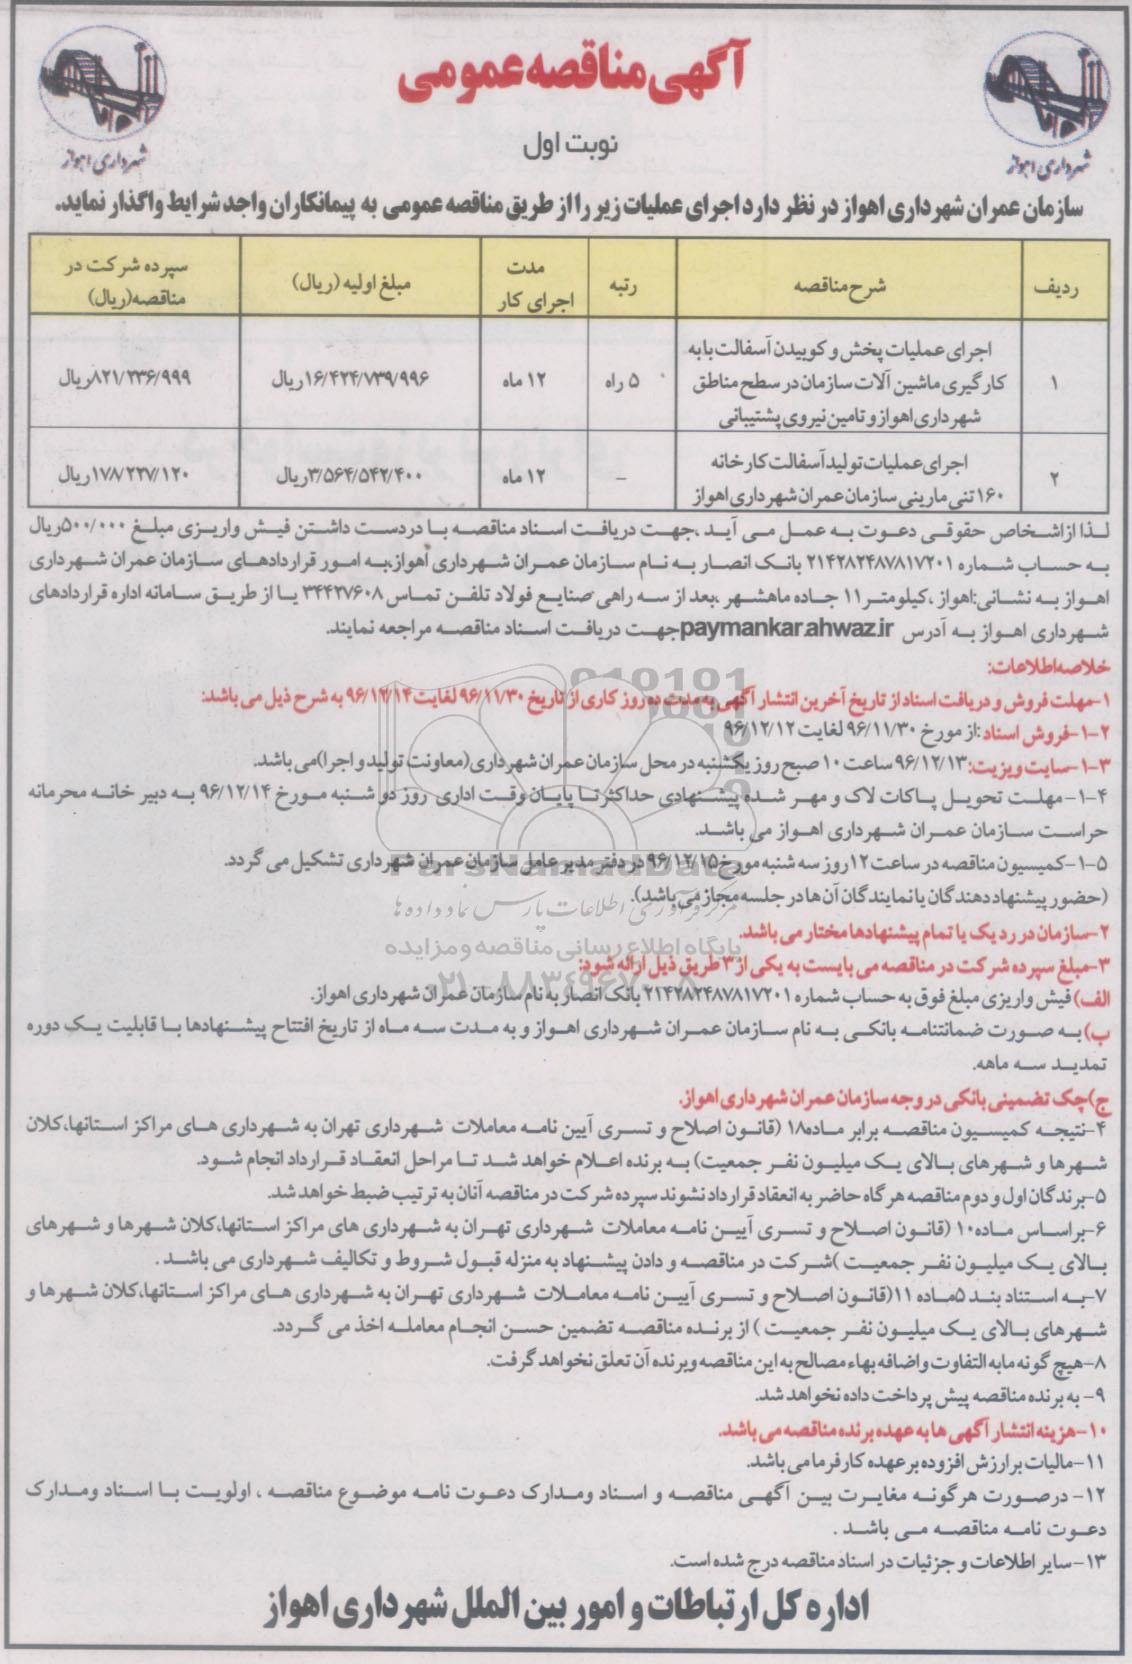 آگهی مناقصه عمومی
نوبت اول
شهرداری اهواز
شهرداری اهواز
سازمان عمران شهرداری اهواز در نظر دارد اجرای عملیات زیر را از طریق مناقصه عمومی به پیمانکاران واجد شرایط واگذار نماید.
ردیف | شرح مناقصه | رتبه | مدت اجرای کار | مبلغ اولیه (ریال) | سپرده شرکت در مناقصه(ریال)
۱ | اجرای عملیات پخش و کوبیدن آسفالت با به کارگیری ماشین آلات سازمان در سطح مناطق شهرداری اهواز و تامین نیروی پشتیبانی | ۵ راه | ۱۲ ماه | ۱۶/۴۲۴/۷۳۹/۹۹۶ریال | ۸۲۱/۲۳۶/۹۹۹ریال
۲ | اجرای عملیات تولید آسفالت کارخانه ۱۶۰تنی مارینی سازمان عمران شهرداری اهواز | – | ۱۲ ماه | ۳/۵۶۴/۵۴۲/۴۰۰ریال | ۱۷۸/۲۲۷/۱۲۰ریال
لذا ازاشخاص حقوقی دعوت به عمل می آید ،جهت دریافت اسناد مناقصه با دردست داشتن فیش واریزی مبلغ ۵۰۰/۰۰۰ریال
به حساب شماره ۲۱۴۲۸۲۴۸۷۸۱۷۲۰۱ بانک انصار به نام سازمان عمران شهرداری اهواز،به امور قراردادهای سازمان عمران شهرداری
اهواز به نشانی:اهواز ،کیلومتر۱۱ جاده ماهشهر ،بعد از سه راهی صنایع فولاد تلفن تماس ۳۴۴۲۷۶۰۸ یا از طریق سامانه اداره قراردادهای
شهرداری اهواز به آدرس paymankar.ahwaz.irجهت دریافت اسناد مناقصه مراجعه نمایند.
خلاصه اطلاعات:
۱-مهلت فروش و دریافت اسناد از تاریخ آخرین انتشار آگهی به مدت ده روز کاری از تاریخ ۹۶/۱۱/۳۰ لغایت ۹۶/۱۲/۱۴ به شرح ذیل می باشد:
۱-۲-فروش اسناد :از مورخ ۹۶/۱۱/۳۰ لغایت ۹۶/۱۲/۱۲
۱-۳-سایت ویزیت:۹۶/۱۲/۱۳ ساعت ۱۰ صبح روز یکشنبه در محل سازمان عمران شهرداری(معاونت تولید و اجرا)می باشد.
۱-۴-مهلت تحویل پاکات لاک و مهر شده پیشنهادی حداکثر تا پایان وقت اداری روز دو شنبه مورخ ۹۶/۱۲/۱۴ به دبیر خانه محرمانه
حراست سازمان عمران شهرداری اهواز می باشد.
۱-۵-کمیسیون مناقصه در ساعت ۱۲ روز سه شنبه مورخ ۹۶/۱۲/۱۵ در دفتر مدیر عامل سازمان عمران شهرداری تشکیل می گردد.
(حضور پیشنهاد دهندگان یا نمایندگان آن ها در جلسه مجاز می باشد).
۲-سازمان در رد یک یا تمام پیشنهادها مختار می باشد.
۳-مبلغ سپرده شرکت در مناقصه می بایست به یکی از ۳ طریق ذیل ارائه شود:
الف) فیش واریزی مبلغ فوق به حساب شماره ۲۱۴۲۸۲۴۸۷۸۱۷۲۰۱ بانک انصار به نام سازمان عمران شهرداری اهواز.
ب) به صورت ضمانتنامه بانکی به نام سازمان عمران شهرداری اهواز و به مدت سه ماه از تاریخ افتتاح پیشنهادها با قابلیت یک دوره
تمدید سه ماهه.
ج)چک تضمینی بانکی در وجه سازمان عمران شهرداری اهواز.
۴-نتیجه کمیسیون مناقصه برابر ماده۱۸ (قانون اصلاح و تسری آیین نامه معاملات شهرداری تهران به شهرداری های مراکز استانها،کلان
شهرها و شهرهای بالای یک میلیون نفر جمعیت) به برنده اعلام خواهد شد تا مراحل انعقاد قرارداد انجام شود.
۵-برندگان اول و دوم مناقصه هر گاه حاضر به انعقاد قرارداد نشوند سپرده شرکت در مناقصه آنان به ترتیب ضبط خواهد شد.
۶-براساس ماده۱۰ (قانون اصلاح و تسری آیین نامه معاملات شهرداری تهران به شهرداری های مراکز استانها،کلان شهرها و شهرهای
بالای یک میلیون نفر جمعیت )شرکت در مناقصه و دادن پیشنهاد به منزله قبول شروط و تکالیف شهرداری می باشد .
۷-به استناد بند ۵ماده ۱۱(قانون اصلاح و تسری آیین نامه معاملات شهرداری تهران به شهرداری های مراکز استانها،کلان شهرها و
شهرهای بالای یک میلیون نفر جمعیت ) از برنده مناقصه تضمین حسن انجام معامله اخذ می گردد.
۸-هیچ گونه مابه التفاوت واضافه بهاء مصالح به این مناقصه وبرنده آن تعلق نخواهد گرفت.
۹- به برنده مناقصه پیش پرداخت داده نخواهد شد.
۱۰-هزینه انتشار آگهی ها به عهده برنده مناقصه می باشد.
۱۱-مالیات بر ارزش افزوده بر عهده کارفرما می باشد.
۱۲- درصورت هرگونه مغایرت بین آگهی مناقصه و اسناد ومدارک دعوت نامه موضوع مناقصه ، اولویت با اسناد ومدارک
دعوت نامه مناقصه می باشد .
۱۳-سایر اطلاعات و جزئیات در اسناد مناقصه درج شده است.
اداره کل ارتباطات و امور بین الملل شهرداری اهواز
ParsNamadData
مرکز فرآوری اطلاعات پارس نماد داده ها
پایگاه اطلاع رسانی مناقصه و مزایده